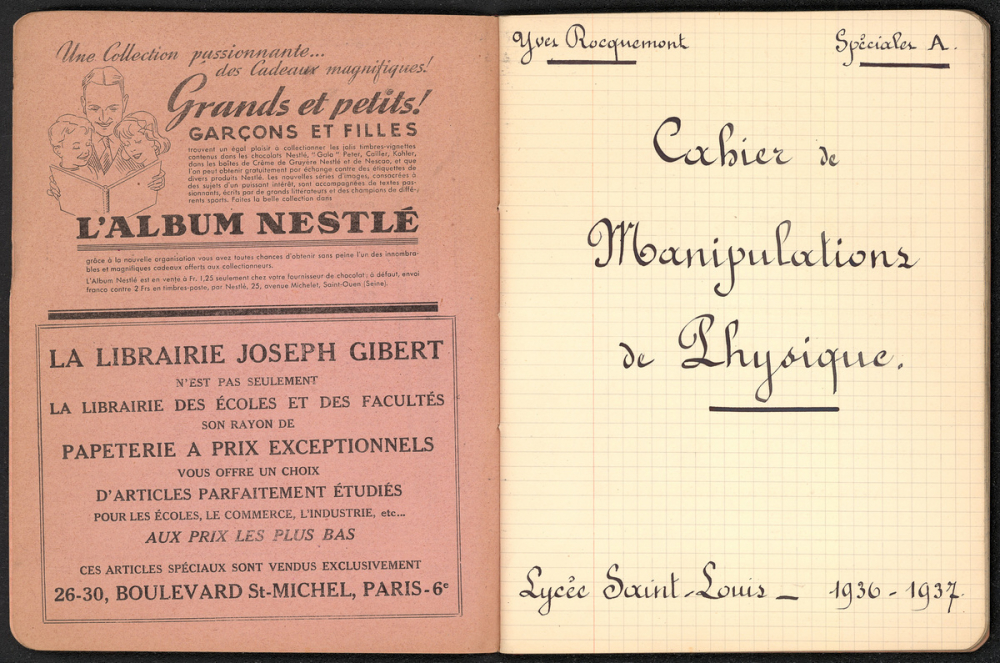 Une Collection passionnante...
des Cadeaux magnifiques!
Grands et petits!
GARÇONS ET FILLES
trouvent un égal plaisir à collectionner les jolis timbres-vignettes
contenus dans les chocolats Nestlé, "Gala" Peter, Cailler, Kohler,
dans les boîtes de Crème de Gruyère Nestlé et de Nescao, et que
l'on peut obtenir gratuitement par échange contre des étiquettes de
divers produits Nestlé. Les nouvelles séries d'images, consacrées à
des sujets d'un puissant intérêt, sont accompagnées de textes pas-
sionnants, écrits par de grands littérateurs et des champions de diffé-
rents sports. Faites la belle collection dans
L'ALBUM NESTLÉ
grâce à la nouvelle organisation vous avez toutes chances d'obtenir sans peine l'un des innombra-
bles et magnifiques cadeaux offerts aux collectionneurs.
L'Album Nestlé est en vente à Fr. 1,25 seulement chez votre fournisseur de chocolat; à défaut, envoi
franco contre 2 Frs en timbres-poste, par Nestlé, 25, avenue Michelet, Saint-Ouen (Seine).
LA LIBRAIRIE JOSEPH GIBERT
N'EST PAS SEULEMENT
LA LIBRAIRIE DES ÉCOLES ET DES FACULTÉS
SON RAYON DE
PAPETERIE A PRIX EXCEPTIONNELS
VOUS OFFRE UN CHOIX
D'ARTICLES PARFAITEMENT ÉTUDIÉS
POUR LES ÉCOLES, LE COMMERCE, L'INDUSTRIE, etc...
AUX PRIX LES PLUS BAS
CES ARTICLES SPÉCIAUX SONT VENDUS EXCLUSIVEMENT
26-30, BOULEVARD St-MICHEL, PARIS-6e
Yves Rocquemont
Spéciales A.
Cahier de
Manipulations
de Physique.
Lycée Saint-Louis _ 1936-1937.